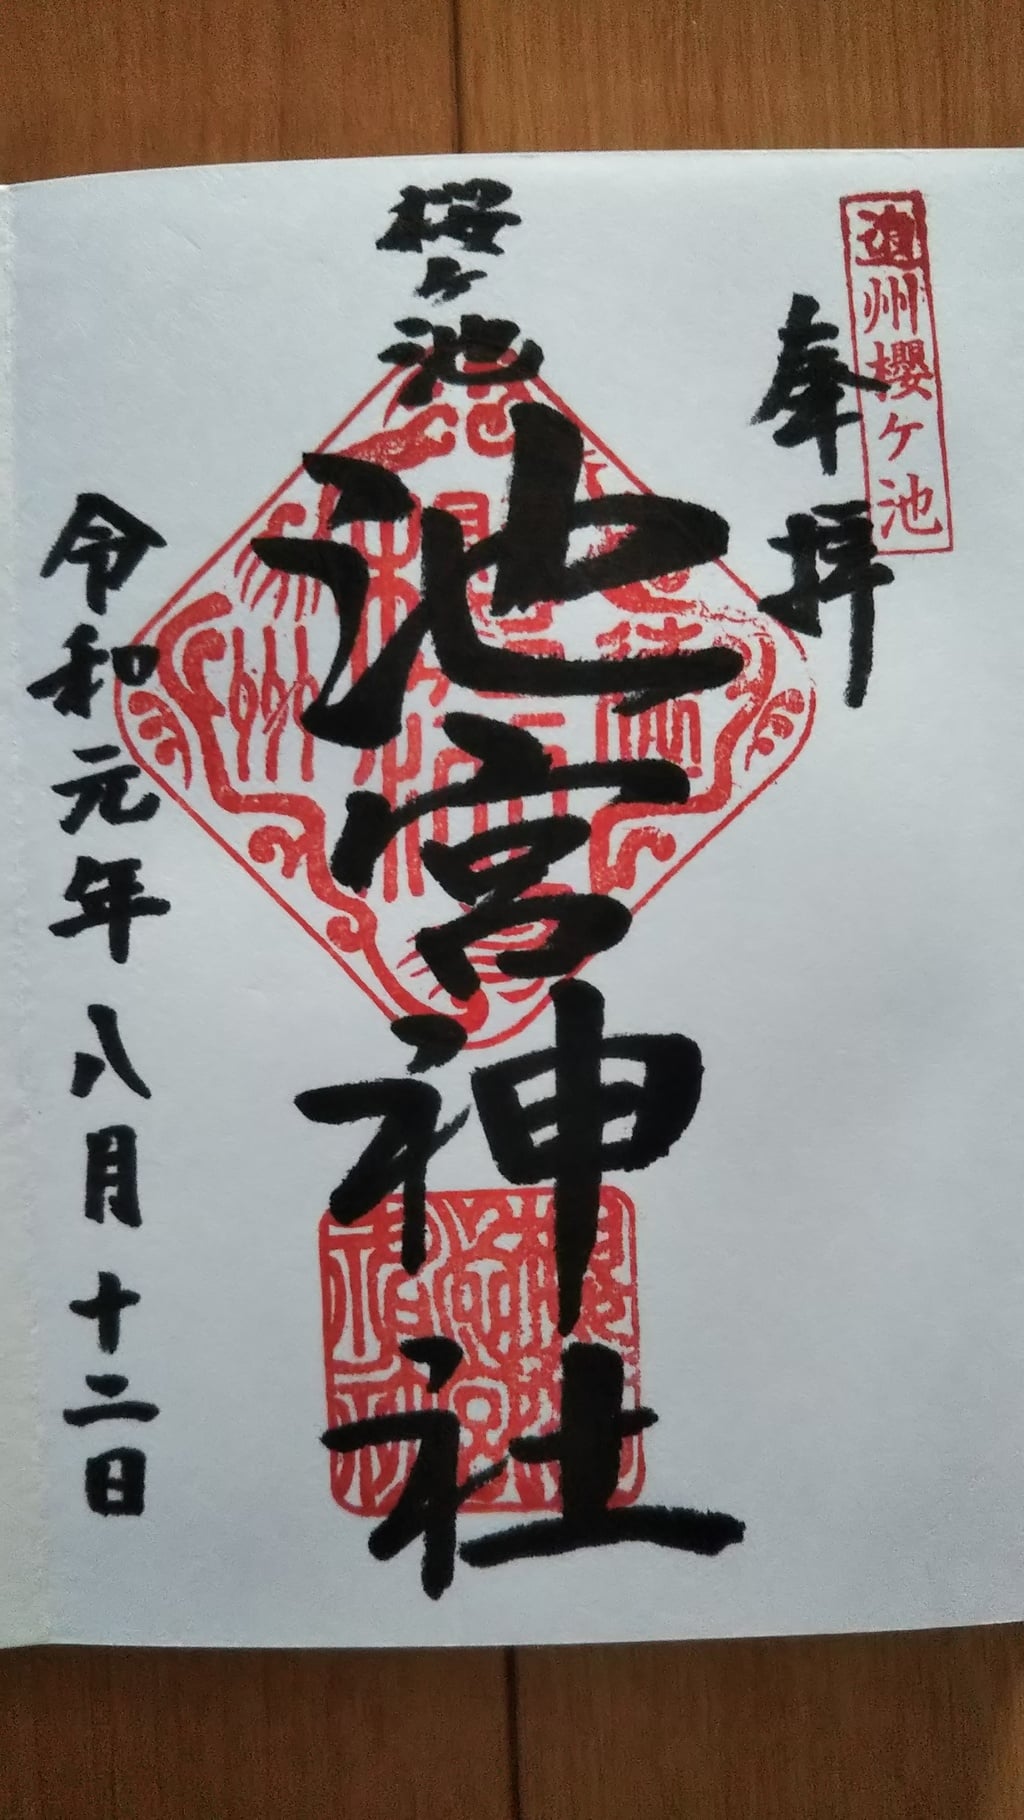 遠州櫻ケ池
奉拝
桜ヶ池
池宮神社
令和元年八月十二日